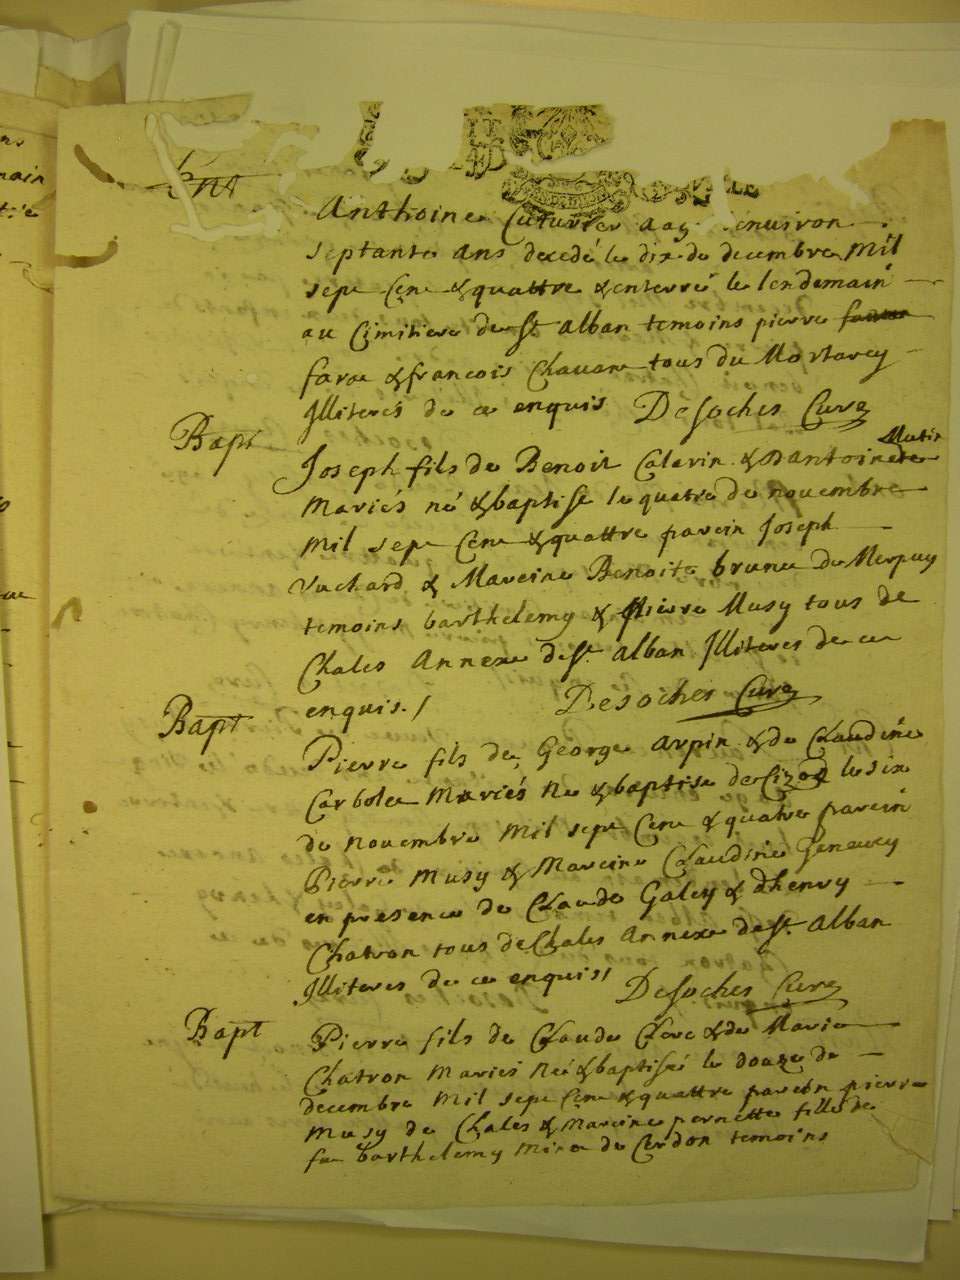 Ent
Anthoine Cuturier aag environ
septante ans decedé le dix de decembre Mil
sept Cent & quattre & enterré le lendemain
au Cimitiere de St alban temoins pierre
farae & francois Chavan tous du Mortarey
Illiterés de ce enquis Desoches Curé
Bapt
Joseph fils de Benoit Calavin & dantoine
Mariés né & baptise le quatre de novembre
Mil sept Cent & quattre parein Joseph
Vuchard & Mareine Benoite brune du Merpuy
temoins barthelemy & Pierre Musy tous de
Chales Annexe de St alban Illiteres de ce
enquis./ Desoches Curé
Bapt
Pierre fils de George Arpin & de Claudine
Carbolee Mariés Né & baptise de Cizod le six
de Novembre Mil sept Cent & quatre parein
Pierre Musy & Mareine Claudine Genevey
en presence de Claude Galey & dhenry
Chatron tous de Chales Annexe de St. alban
Illiteres de ce enquis/ Desoches Curé
Bapt
Pierre fils de Claude Clerc & de Marie
Chatron Mariés Né & baptisé le douze de
decembre Mil sept Cent & quattre parein pierre
Musy de Chales & Mareine pernette fille de
fu barthelemy de Cerdon temoins